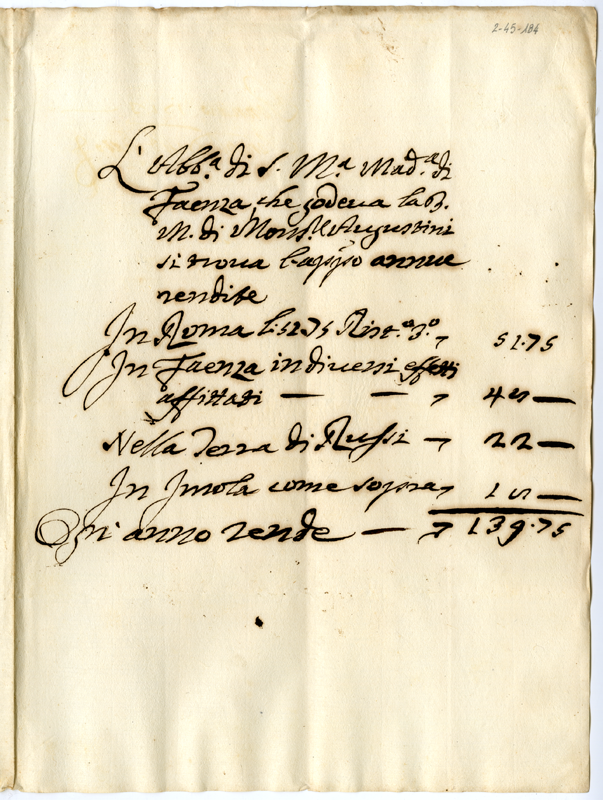 2-45-184
L'Abb.ª di S. M.ª Mad.ª di
Faenza, che godeva la B.
M. di Mons.re Augustini
si trova l'appso annue
rendite
In Roma 51.75 Rist.º 3.º 51.75
In Faenza in diversi effetti
affittati — — 45 —
Nella Terra di Russi — 22 —
In Imola come sopra 15 —
Ogn' anno rende — 139.75